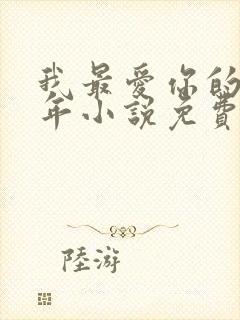 我最愛你的
年小説免費
陸游